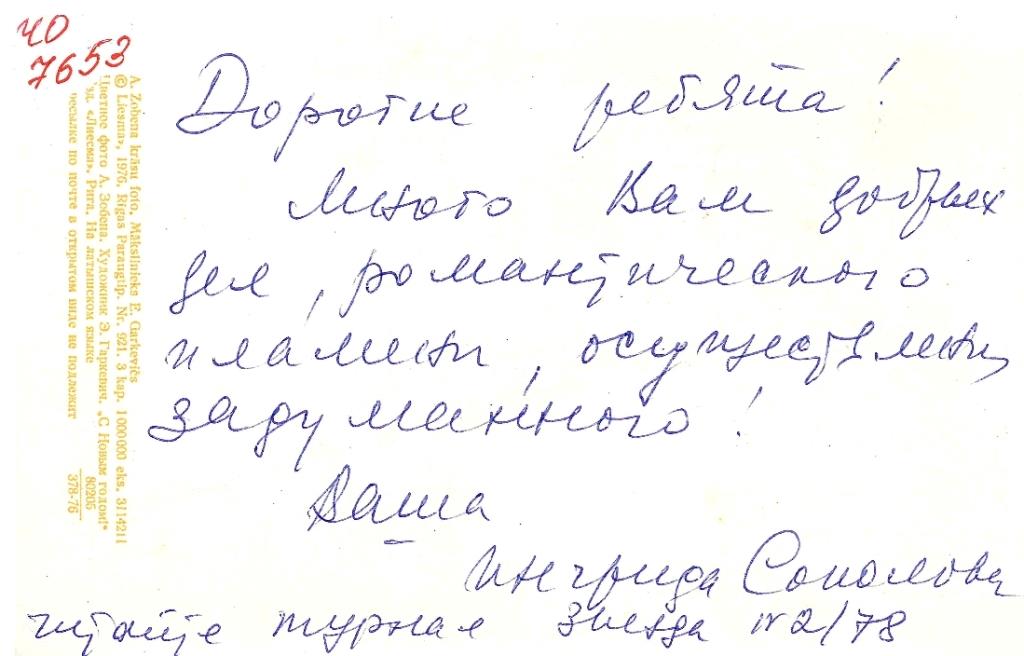 ЧО
7653
Дорогие ребята!
Много Вам добрых
дел, романтического
пламени, осуществлений
задуманного!
Ваша
Ингрида Соколова
читайте журнал Звезда №2/78
A. Zobena krāsu foto. Mākslinieks E. Garkevičs
© «Liesma», 1976. Rīgas Paraugtip. Nr. 921. 3 kap. 1000000 eks. 3114211
Цветное фото А. Зобена. Художник Э. Гаркевич. „С Новым годом!“
зд. «Лиесма». Рига. На латышском языке
80205
есылке по почте в открытом виде не подлежит
378-76